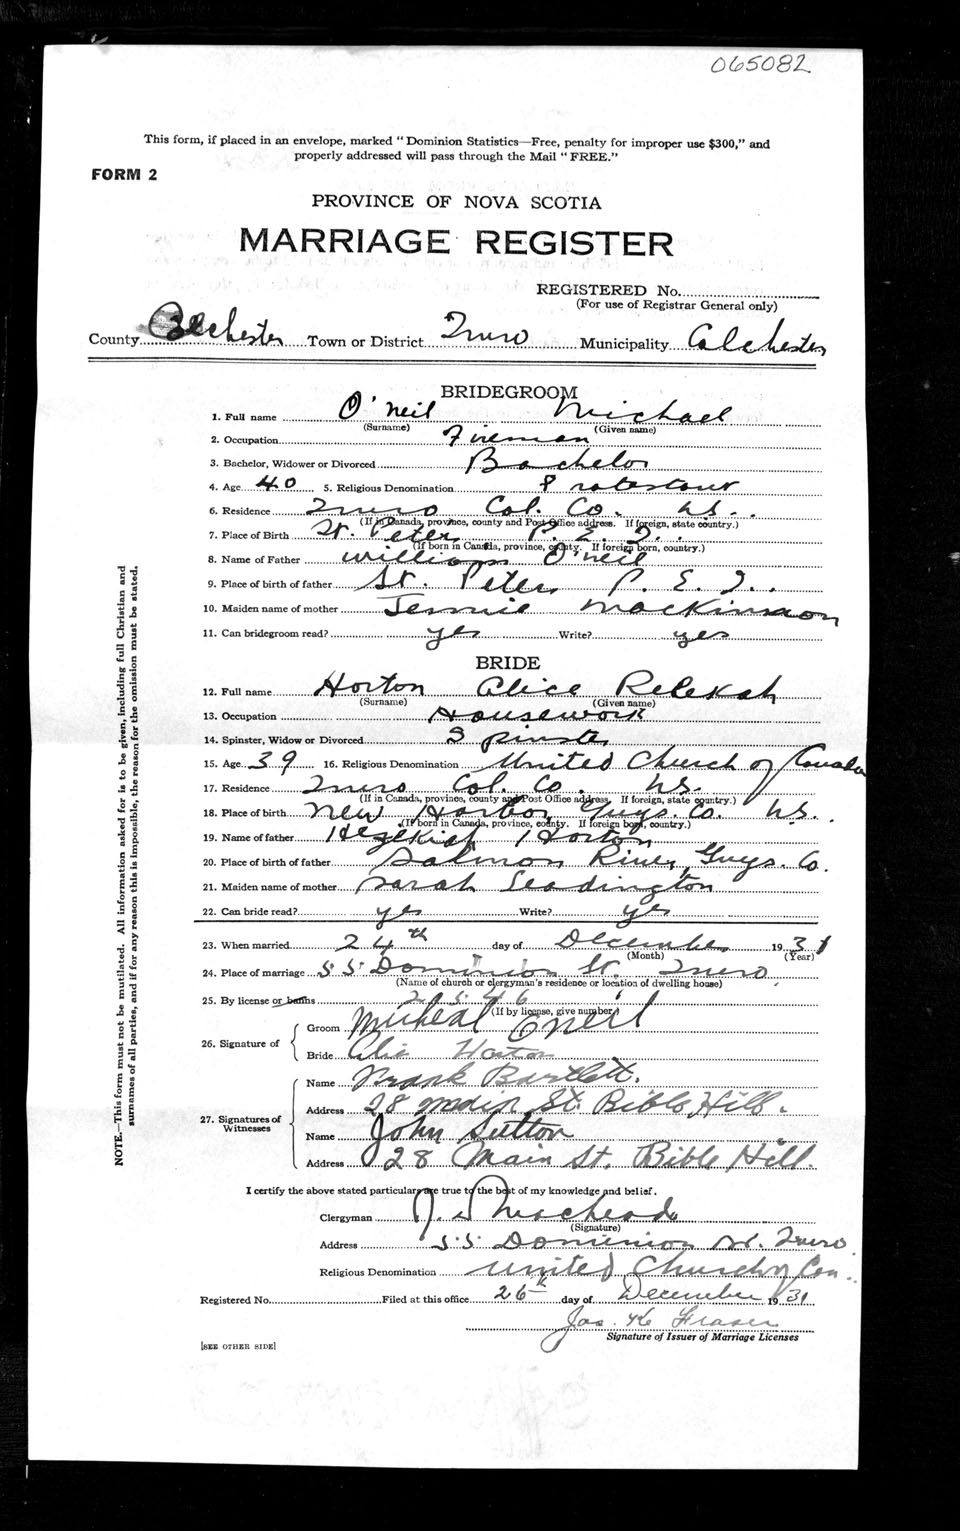 065082
This form, if placed in an envelope, marked "Dominion Statistics—Free, penalty for improper use $300," and
properly addressed will pass through the Mail "FREE."
FORM 2
PROVINCE OF NOVA SCOTIA
MARRIAGE REGISTER
REGISTERED No.
(For use of Registrar General only)
County Colchester Town or District Truro Municipality Colchester
BRIDEGROOM
1. Full name O'Neil Michael
(Surname) (Given name)
2. Occupation Fireman
3. Bachelor, Widower or Divorced Bachelor
4. Age 40 5. Religious Denomination Protestant
6. Residence Truro Col. Co. N.S.
(If in Canada, province, county and Post Office address. If foreign, state country.)
7. Place of Birth St. Peter P. E. I.
(If born in Canada, province, county. If foreign born, country.)
8. Name of Father William O'neil
9. Place of birth of father St. Peter P. E. I.
10. Maiden name of mother Jennie MacKinnon
11. Can bridegroom read? yes Write? yes
BRIDE
12. Full name Horton Alice Rebekah
(Surname) (Given name)
13. Occupation Housework
14. Spinster, Widow or Divorced Spinster
15. Age 39 16. Religious Denomination United Church of Canada
17. Residence Truro Col. Co. N.S.
(If in Canada, province, county and Post Office address. If foreign, state country.)
18. Place of birth New Harbor Guys. Co. N.S.
(If born in Canada, province, county. If foreign born, country.)
19. Name of father Hezekiah Horton
20. Place of birth of father Salmon River, Guys. Co.
21. Maiden name of mother Sarah Leadington
22. Can bride read? yes Write? yes
23. When married 24th day of December 1931
(Month) (Year)
24. Place of marriage 55 Dominion St. Truro
(Name of church or clergyman's residence or location of dwelling house)
25. By license or banns
(If by license, give number)
26. Signature of
Groom Micheal O'Neil
Bride Alic Horton
27. Signatures of Witnesses
Name Frank Bartlett.
Address 28 Main St. Bible Hill.
Name John Sutton
Address 28 Main St. Bible Hill.
I certify the above stated particulars are true to the best of my knowledge and belief.
Clergyman
(Signature)
Address 55 Dominion St. Truro
Religious Denomination United Church of Can.
Registered No. Filed at this office 26th day of December 1931
Jas. Fraser
Signature of Issuer of Marriage Licenses
[SEE OTHER SIDE]
NOTE.—This form must not be mutilated. All information asked for is to be given, including full Christian and
surnames of all parties, and if for any reason this is impossible, the reason for the omission must be stated.